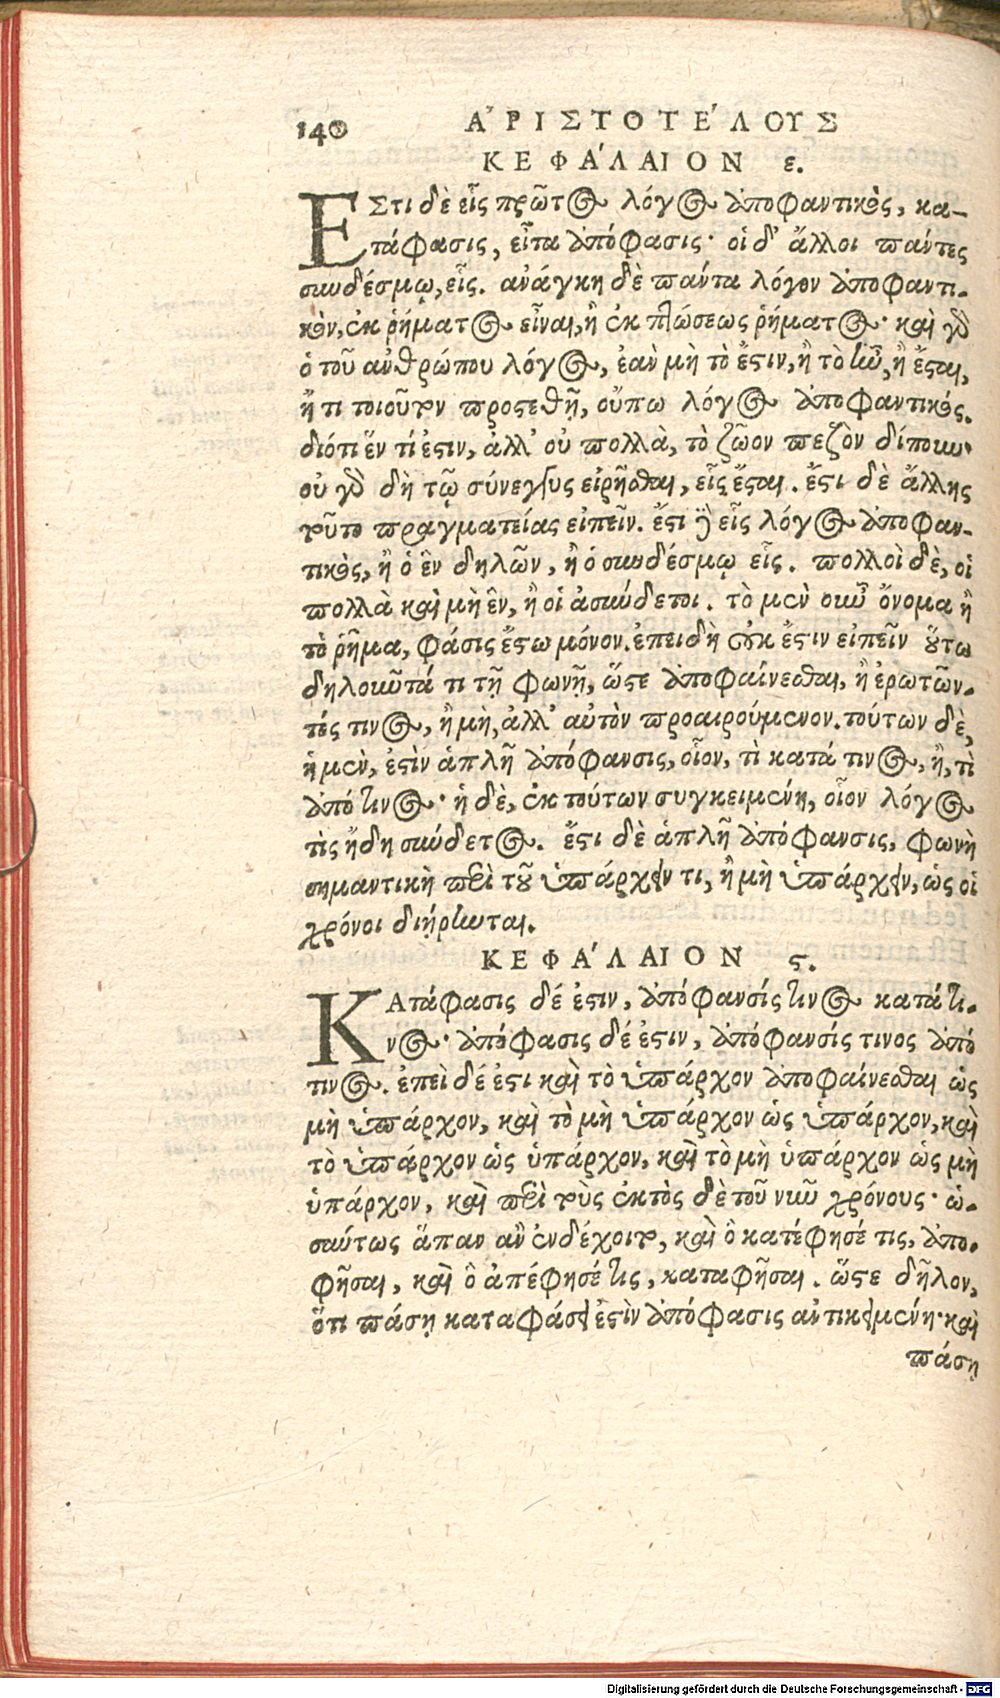 140 ΑʼΡΙΣΤΟΤΕʹΛΟΥΣ
ΚΕΦΑʹΛΑΙΟΝ ε.
ΕΣτι δὲ εἷς πρῶτος λόγος ἀποφαντικὸς, κα-
τάφασις, εἶτα ἀπόφασις· οἱ δ' ἄλλοι πάντες
συνδέσμῳ, εἷς. ἀνάγκη δὲ πάντα λόγον ἀποφαντι-
κὸν, ἐκ ῥήματος εἶναι, ἢ ἐκ πτώσεως ῥήματος· καὶ γὰρ
ὁ τοῦ ἀνθρώπου λόγος, ἐὰν μὴ τὸ ἔστιν, ἢ τὸ ἦν, ἢ ἔσται,
ἤ τι τοιοῦτον προστεθῇ, οὔπω λόγος ἀποφαντικός.
διότι ἕν τί ἐστιν, ἀλλ' οὐ πολλὰ, τὸ ζῶον πεζὸν δίπουν·
οὐ γὰρ δὴ τῷ σύνεγγυς εἰρῆσθαι, εἷς ἔσται. ἔστι δὲ ἄλλης
τοῦτο πραγματείας εἰπεῖν. ἔστι δὲ εἷς λόγος ἀποφαν-
τικὸς, ἢ ὁ ἓν δηλῶν, ἢ ὁ συνδέσμῳ εἷς. πολλοὶ δὲ, οἱ
πολλὰ καὶ μὴ ἓν, ἢ οἱ ἀσύνδετοι. τὸ μὲν οὖν ὄνομα ἢ
τὸ ῥῆμα, φάσις ἔστω μόνον. ἐπειδὴ οὐκ ἔστιν εἰπεῖν οὕτω
δηλοῦντά τι τῇ φωνῇ, ὥστε ἀποφαίνεσθαι, ἢ ἐρωτῶν-
τός τινος, ἢ μὴ, ἀλλ' αὐτὸν προαιρούμενον. τούτων δὲ,
ἡ μὲν, ἐστὶν ἁπλῆ ἀπόφανσις, οἷον, τὶ κατά τινος, ἢ, τὶ
ἀπό τινος· ἡ δὲ, ἐκ τούτων συγκειμένη, οἷον λόγος
τὶς ἤδη σύνδετος. ἔστι δὲ ἁπλῆ ἀπόφανσις, φωνὴ
σημαντικὴ περὶ τοῦ ὑπάρχειν τι, ἢ μὴ ὑπάρχειν, ὡς οἱ
χρόνοι διῄρηνται.
ΚΕΦΑʹΛΑΙΟΝ ϛ.
ΚΑτάφασις δέ ἐστιν, ἀπόφανσίς τινος κατά τι-
νος· ἀπόφασις δέ ἐστιν, ἀπόφανσίς τινος ἀπό
τινος. ἐπεὶ δέ ἐστι καὶ τὸ ὑπάρχον ἀποφαίνεσθαι ὡς
μὴ ὑπάρχον, καὶ τὸ μὴ ὑπάρχον ὡς ὑπάρχον, καὶ
τὸ ὑπάρχον ὡς ὑπάρχον, καὶ τὸ μὴ ὑπάρχον ὡς μὴ
ὑπάρχον, καὶ περὶ τοὺς ἐκτὸς δὲ τοῦ νῦν χρόνους· ὡ-
σαύτως ἅπαν ἂν ἐνδέχοιτο, καὶ ὃ κατέφησέ τις, ἀπο-
φῆσαι, καὶ ὃ ἀπέφησέ τις, καταφῆσαι. ὥστε δῆλον,
ὅτι πάσῃ καταφάσει ἐστὶν ἀπόφασις ἀντικειμένη· καὶ
πάσῃ
Digitalisierung gefördert durch die Deutsche Forschungsgemeinschaft - DFG